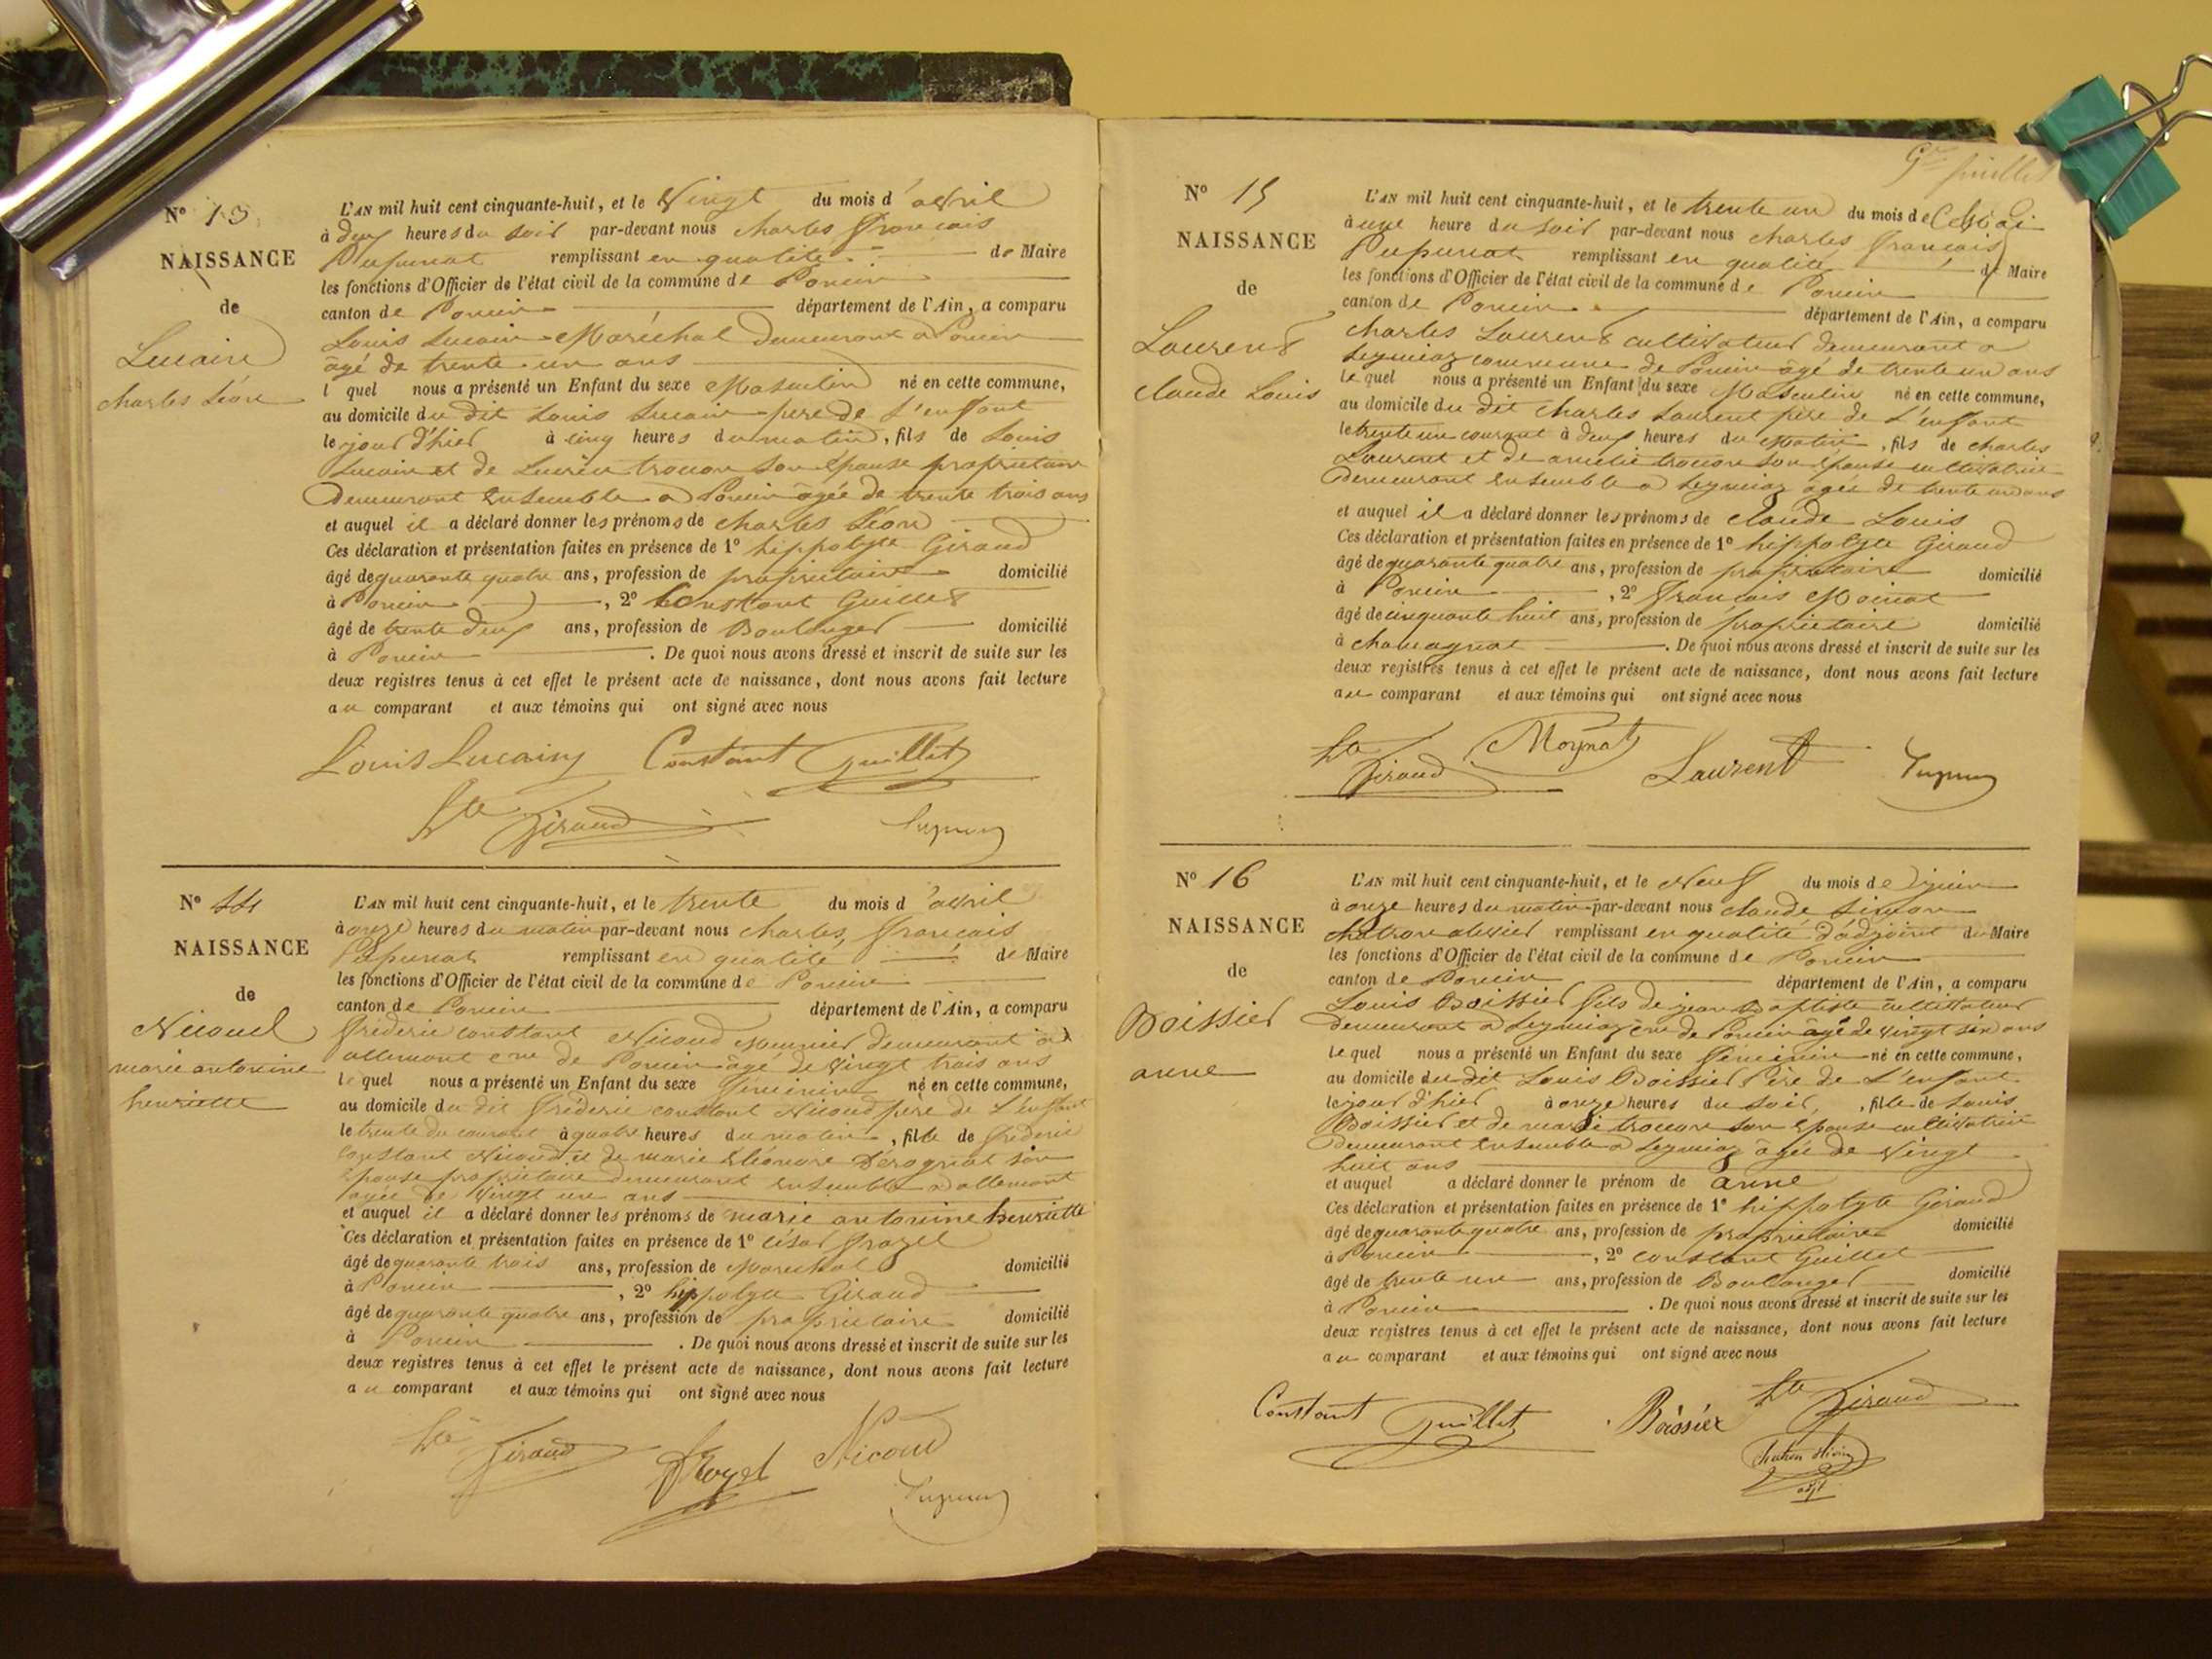 N° 13
NAISSANCE
de
Lucain
charles Léon
L'AN mil huit cent cinquante-huit, et le Vingt du mois d'avril
à deux heures du soir par-devant nous charles Francois
Pupunat remplissant en qualité de Maire
les fonctions d'Officier de l'état civil de la commune de Poncin
canton de Poncin département de l'Ain, a comparu
Louis Lucain Maréchal demeurant a Poncin
âgé de trente un ans
l quel nous a présenté un Enfant du sexe Masculin né en cette commune,
au domicile du dit Louis Lucain pere de l'enfant
le jour d'hier à cinq heures du matin, fils de Louis
Lucain et de Lucrèce trocon son épouse propriétaire
demeurant ensemble a Poncin âgée de trente trois ans
et auquel il a déclaré donner les prénoms de charles Léon
Ces déclaration et présentation faites en présence de 1° hippolyte Giraud
âgé de quarante quatre ans, profession de propriétaire domicilié
à Poncin, 2° Constant Guillet
âgé de trente deux ans, profession de Boulanger domicilié
à Poncin. De quoi nous avons dressé et inscrit de suite sur les
deux registres tenus à cet effet le présent acte de naissance, dont nous avons fait lecture
au comparant et aux témoins qui ont signé avec nous
Louis Lucain Constant Guillet
hte Giraud
N° 14
NAISSANCE
de
Nicoud
marie antonine
henriette
L'AN mil huit cent cinquante-huit, et le trente du mois d'avril
à onze heures du matin par-devant nous charles Francois
Pupunat remplissant en qualité de Maire
les fonctions d'Officier de l'état civil de la commune de Poncin
canton de Poncin département de l'Ain, a comparu
Fréderic constant Nicoud Meunier demeurant à
allement cne de Poncin âgé de vingt trois ans
le quel nous a présenté un Enfant du sexe féminin né en cette commune,
au domicile du dit Fréderic constant Nicoud père de l'enfant
le trente du courant à quatre heures du matin, fille de Fréderic
constant Nicoud et de marie Eléonore Dérognat son
épouse propriétaire demeurant ensemble a allement
agée de vingt un ans
et auquel il a déclaré donner les prénoms de marie antonine henriette
Ces déclaration et présentation faites en présence de 1° César Frozel
âgé de quarante trois ans, profession de Marechal domicilié
à Poncin, 2° hippolyte Giraud
âgé de quarante quatre ans, profession de propriétaire domicilié
à Poncin. De quoi nous avons dressé et inscrit de suite sur les
deux registres tenus à cet effet le présent acte de naissance, dont nous avons fait lecture
au comparant et aux témoins qui ont signé avec nous
hte Giraud Nicoud
N° 15
NAISSANCE
de
Laurent
claude Louis
L'AN mil huit cent cinquante-huit, et le trente un du mois de Mai
à une heure du soir par-devant nous charles Francois
Pupunat remplissant en qualité de Maire
les fonctions d'Officier de l'état civil de la commune de Poncin
canton de Poncin département de l'Ain, a comparu
charles Laurent cultivateur demeurant a
Leymiaz commune de Poncin âgé de trente un ans
le quel nous a présenté un Enfant du sexe Masculin né en cette commune,
au domicile du dit charles Laurent père de l'enfant
le trente un courant à deux heures du matin, fils de charles
Laurent et de amelie trocon son épouse cultivatrice
demeurant ensemble a Leymiaz agée de trente un ans
et auquel il a déclaré donner les prénoms de claude Louis
Ces déclaration et présentation faites en présence de 1° hippolyte Giraud
âgé de quarante quatre ans, profession de propriétaire domicilié
à Poncin, 2° Francois Moinat
âgé de cinquante huit ans, profession de propriétaire domicilié
à chamagnat. De quoi nous avons dressé et inscrit de suite sur les
deux registres tenus à cet effet le présent acte de naissance, dont nous avons fait lecture
au comparant et aux témoins qui ont signé avec nous
hte Giraud Moynat Laurent
N° 16
NAISSANCE
de
Boissier
anne
L'AN mil huit cent cinquante-huit, et le Neuf du mois de juin
à onze heures du matin par-devant nous claude simon
remplissant en qualité d'adjoint du Maire
les fonctions d'Officier de l'état civil de la commune de Poncin
canton de Poncin département de l'Ain, a comparu
Louis Boissier fils de jean Baptiste cultivateur
demeurant a Leymiaz cne de Poncin âgé de vingt six ans
le quel nous a présenté un Enfant du sexe féminin né en cette commune,
au domicile du dit Louis Boissier Père de l'enfant
le jour d'hier à onze heures du soir, fille de Louis
Boissier et de marie trocon son épouse cultivatrice
demeurant ensemble a Leymiaz âgée de vingt
huit ans
et auquel a déclaré donner le prénom de anne
Ces déclaration et présentation faites en présence de 1° hippolyte Giraud
âgé de quarante quatre ans, profession de propriétaire domicilié
à Poncin, 2° constant Guillet
âgé de trente un ans, profession de Boulanger domicilié
à Poncin. De quoi nous avons dressé et inscrit de suite sur les
deux registres tenus à cet effet le présent acte de naissance, dont nous avons fait lecture
au comparant et aux témoins qui ont signé avec nous
Constant Guillet Boissier hte Giraud
adjt